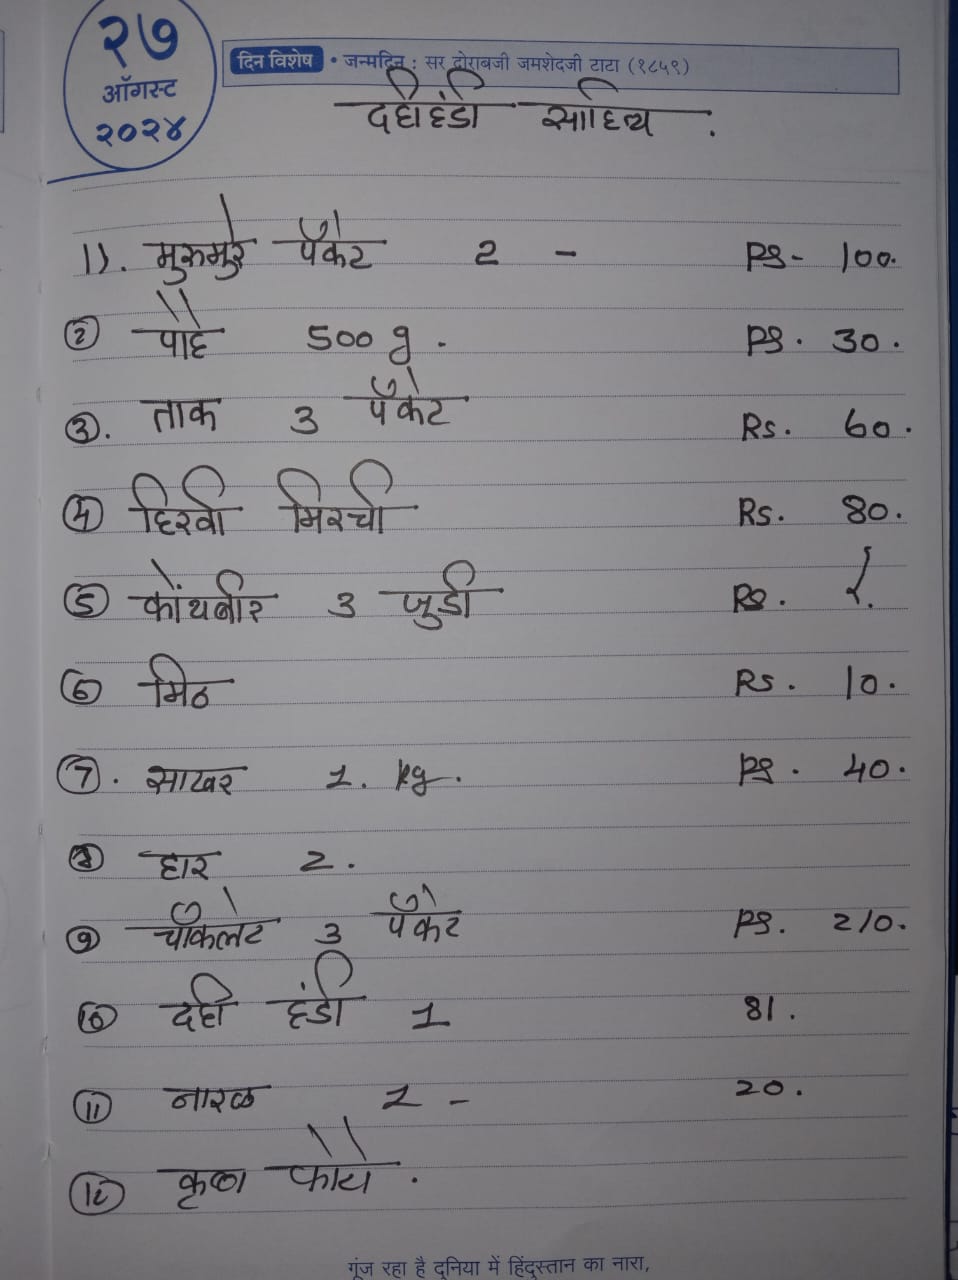 २७
ऑगस्ट
२०२४
दिन विशेष • जन्मदिन : सर दोराबजी जमशेदजी टाटा (१८५९)
दहीहंडी साहित्य .
1). मुरमुरे पॅकेट 2 - Rs- 100.
② पोहे 500 g . Rs. 30.
③. ताक 3 पॅकेट Rs. 60.
④ हिरवी मिरची Rs. 80.
⑤ कोंथबीर 3 जुडी Rs.
⑥ मिठ Rs. 10.
⑦. साखर 1. kg. Rs. 40.
⑧ हार 2.
⑨ चॉकलेट 3 पॅकेट Rs. 210.
⑩ दही हंडी 1 81.
⑪ नारळ 1 - 20.
⑫ कृष्ण फोटो .
गूंज रहा है दुनिया में हिंदुस्तान का नारा,